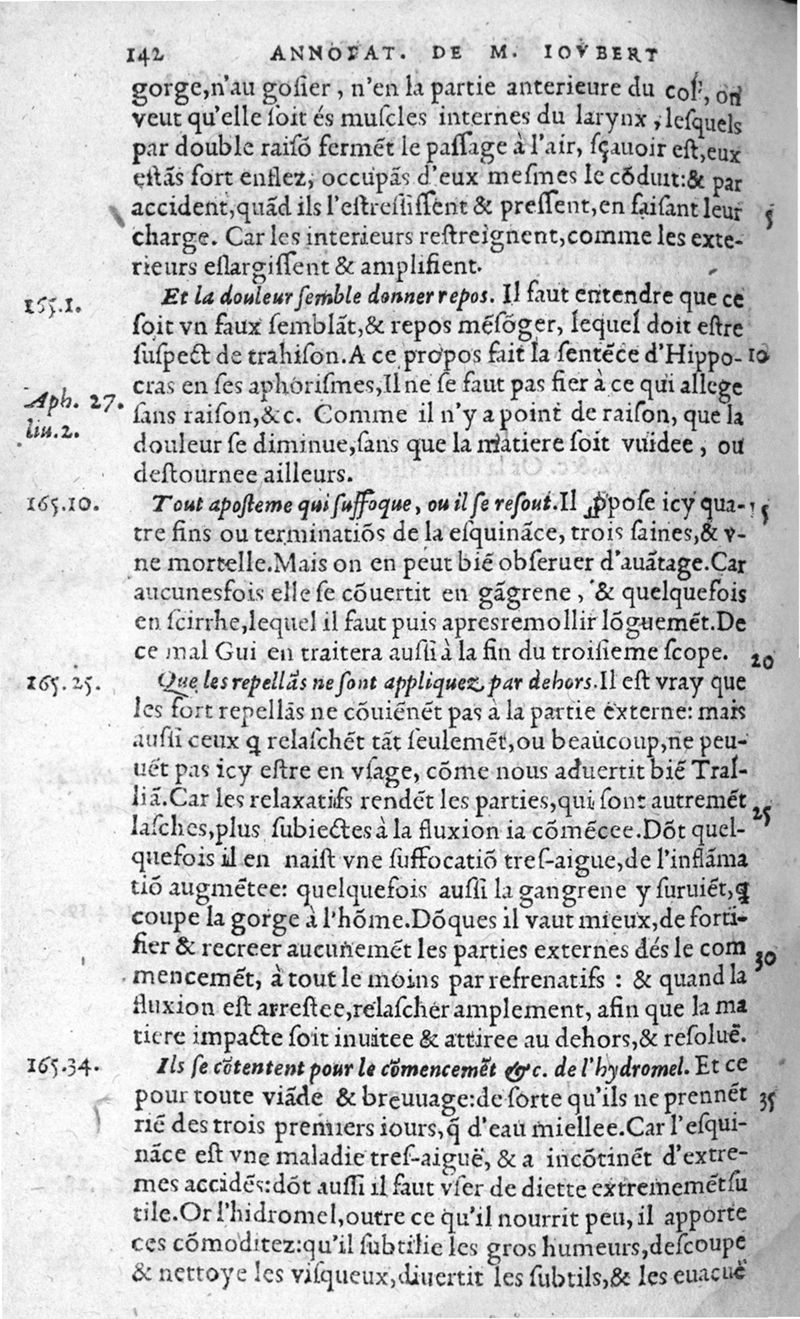 142 ANNOTAT. DE M. IOVBERT
gorge,n'au gosier, n'en la partie anterieure du col, on
veut qu'elle soit és muscles internes du larynx, lesquels
par double raisõ fermẽt le passage à l'air, sçauoir est,eux
estãs fort enflez, occupãs d'eux mesmes le cõduit:& par
accident,quãd ils l'estressissent & pressent,en faisant leur 5
charge. Car les interieurs restreignent,comme les exte-
rieurs eslargissent & amplifient.
165.1. Et la douleur semble donner repos. Il faut entendre que ce
soit vn faux semblãt,& repos mẽsõger, lequel doit estre
suspect de trahison.A ce propos fait la sentẽce d'Hippo- 10
Aph. 27. cras en ses aphorismes,Il ne se faut pas fier à ce qui allege
liu.2. sans raison,&c. Comme il n'y a point de raison, que la
douleur se diminue,sans que la matiere soit vuidee, ou
destournee ailleurs.
165.10. Tout aposteme qui suffoque, ou il se resout.Il ꝓpose icy qua- 15
tre fins ou terminatiõs de la esquinãce, trois saines,& v-
ne mortelle.Mais on en peut biẽ obseruer d'auãtage.Car
aucunesfois elle se cõuertit en gãgrene, & quelquefois
en scirrhe,lequel il faut puis apres remollir lõguemẽt.De
ce mal Gui en traitera aussi à la fin du troisieme scope. 20
165.25. Que les repellãs ne sont appliquez par dehors.Il est vray que
les fort repellãs ne cõuiẽnẽt pas à la partie externe: mais
aussi ceux q̃ relaschẽt tãt seulemẽt,ou beaucoup,ne peu-
uẽt pas icy estre en vsage, cõme nous aduertit biẽ Tral-
liã.Car les relaxatifs rendẽt les parties,qui sont autremẽt 25
lasches,plus subiectes à la fluxion ia cõmẽcee.Dõt quel-
quefois il en naist vne suffocatiõ tres-aigue,de l'inflãma
tiõ augmẽtee: quelquefois aussi la gangrene y suruiẽt,q̃
coupe la gorge à l'hõme.Dõques il vaut mieux,de forti-
fier & recreer aucunemẽt les parties externes dés le com 30
mencemẽt, à tout le moins par refrenatifs : & quand la
fluxion est arrestee,relascher amplement, afin que la ma
tiere impacte soit inuitee & attiree au dehors,& resoluẽ.
165.34. Ils se cõtentent pour le cõmencemẽt &c. de l'hydromel. Et ce
pour toute viãde & breuuage:de sorte qu'ils ne prennẽt 35
riẽ des trois premiers iours,q̃ d'eau miellee.Car l'esqui-
nãce est vne maladie tres-aiguë, & a incõtinẽt d'extre-
mes accidẽs:dõt aussi il faut vser de diette extrememẽt su
tile.Or l'hidromel,outre ce qu'il nourrit peu,il apporte
ces cõmoditez:qu'il subtilie les gros humeurs,descoupe
& nettoye les visqueux,diuertit les subtils,& les euacuë